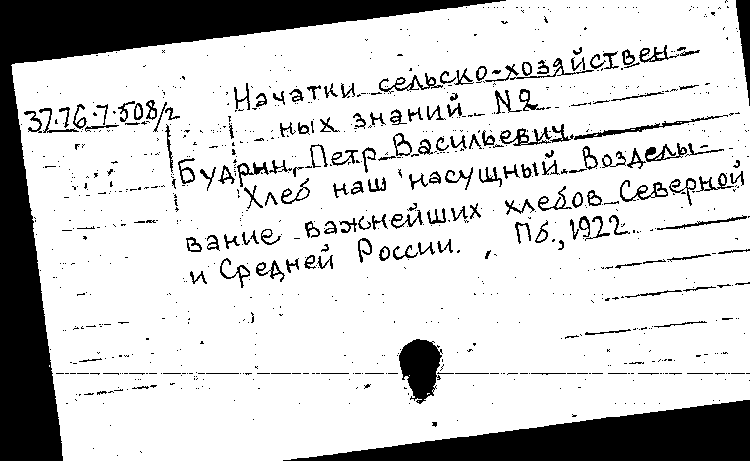 Начатки сельско-хозяйствен-
37.76.7.508/2
ных знаний N2
Будрин, Петр Васильевич
Хлеб наш насущный. Возделы-
вание важнейших хлебов Северной
и Средней России. , Пб., 1922